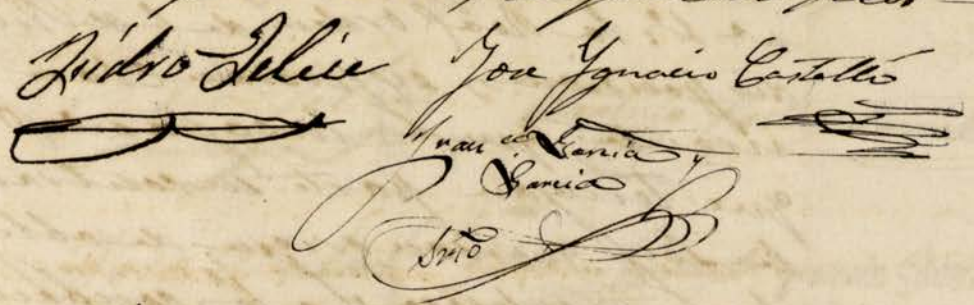 Isidro Felice José Ygnacio Castelló
Franco García y
García
Srio